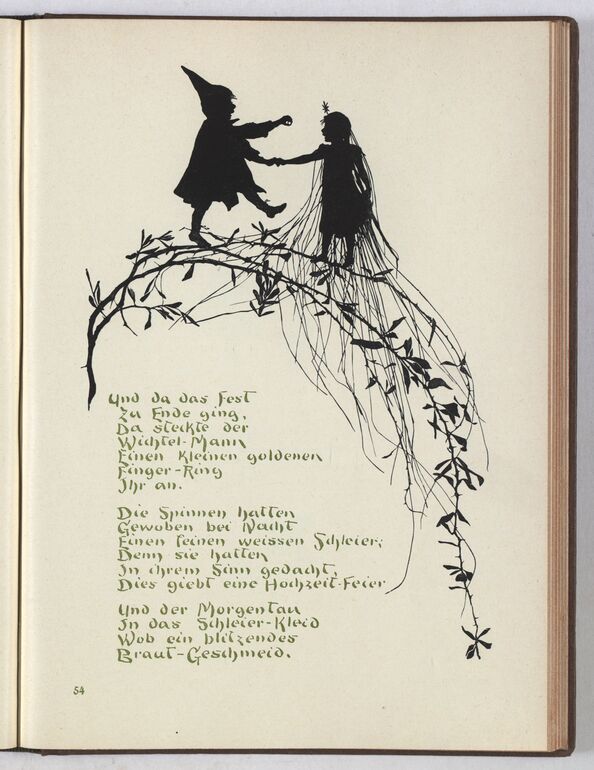 Und da das Fest
Zu Ende ging,
Da steckte der
Wichtel-Mann
Einen kleinen goldenen
Finger-Ring
Ihr an.
Die Spinnen hatten
Gewoben bei Nacht
Einen feinen weissen Schleier;
Denn sie hatten
In ihrem Sinn gedacht,
Dies giebt eine Hochzeit-Feier
Und der Morgentau
In das Schleier-Kleid
Wob ein blitzendes
Braut-Geschmeid.
54